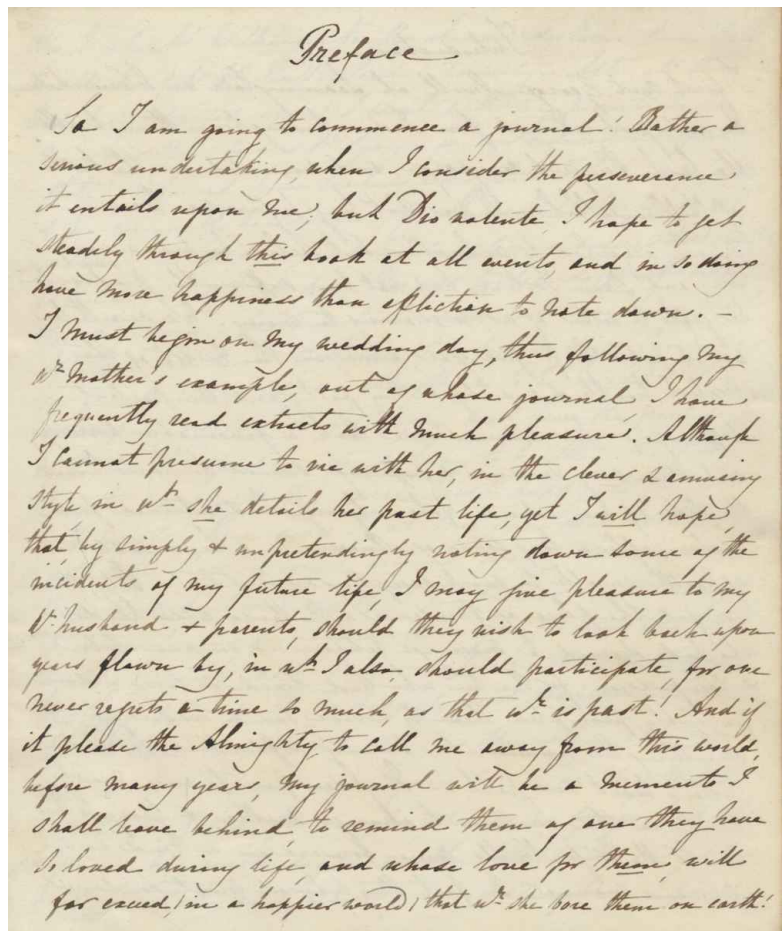 Preface
So I am going to commence a journal! Rather a
serious undertaking, when I consider the perseverance
it entails upon me; but Dio volente, I hope to get
steadily through this book at all events, and in so doing
have more happiness than affliction to note down. –
I must begin on my wedding day, thus following my
dr Mother's example, out of whose journal, I have
frequently read extracts with much pleasure. Although
I cannot presume to vie with her, in the clever & amusing
style in wh she details her past life, yet I will hope,
that, by simply & unpretendingly noting down some of the
incidents of my future life, I may give pleasure to my
dr husband & parents, should they wish to look back upon
years flown by, in wh I also, should participate, for one
never regrets a time so much, as that wh is past! And if
it please the Almighty, to call me away from this world,
before many years, my journal will be a memento I
shall leave behind, to remind them of one they have
so loved during life, and whose love for them, will
far exceed, (in a happier world) that wh she bore them on earth!